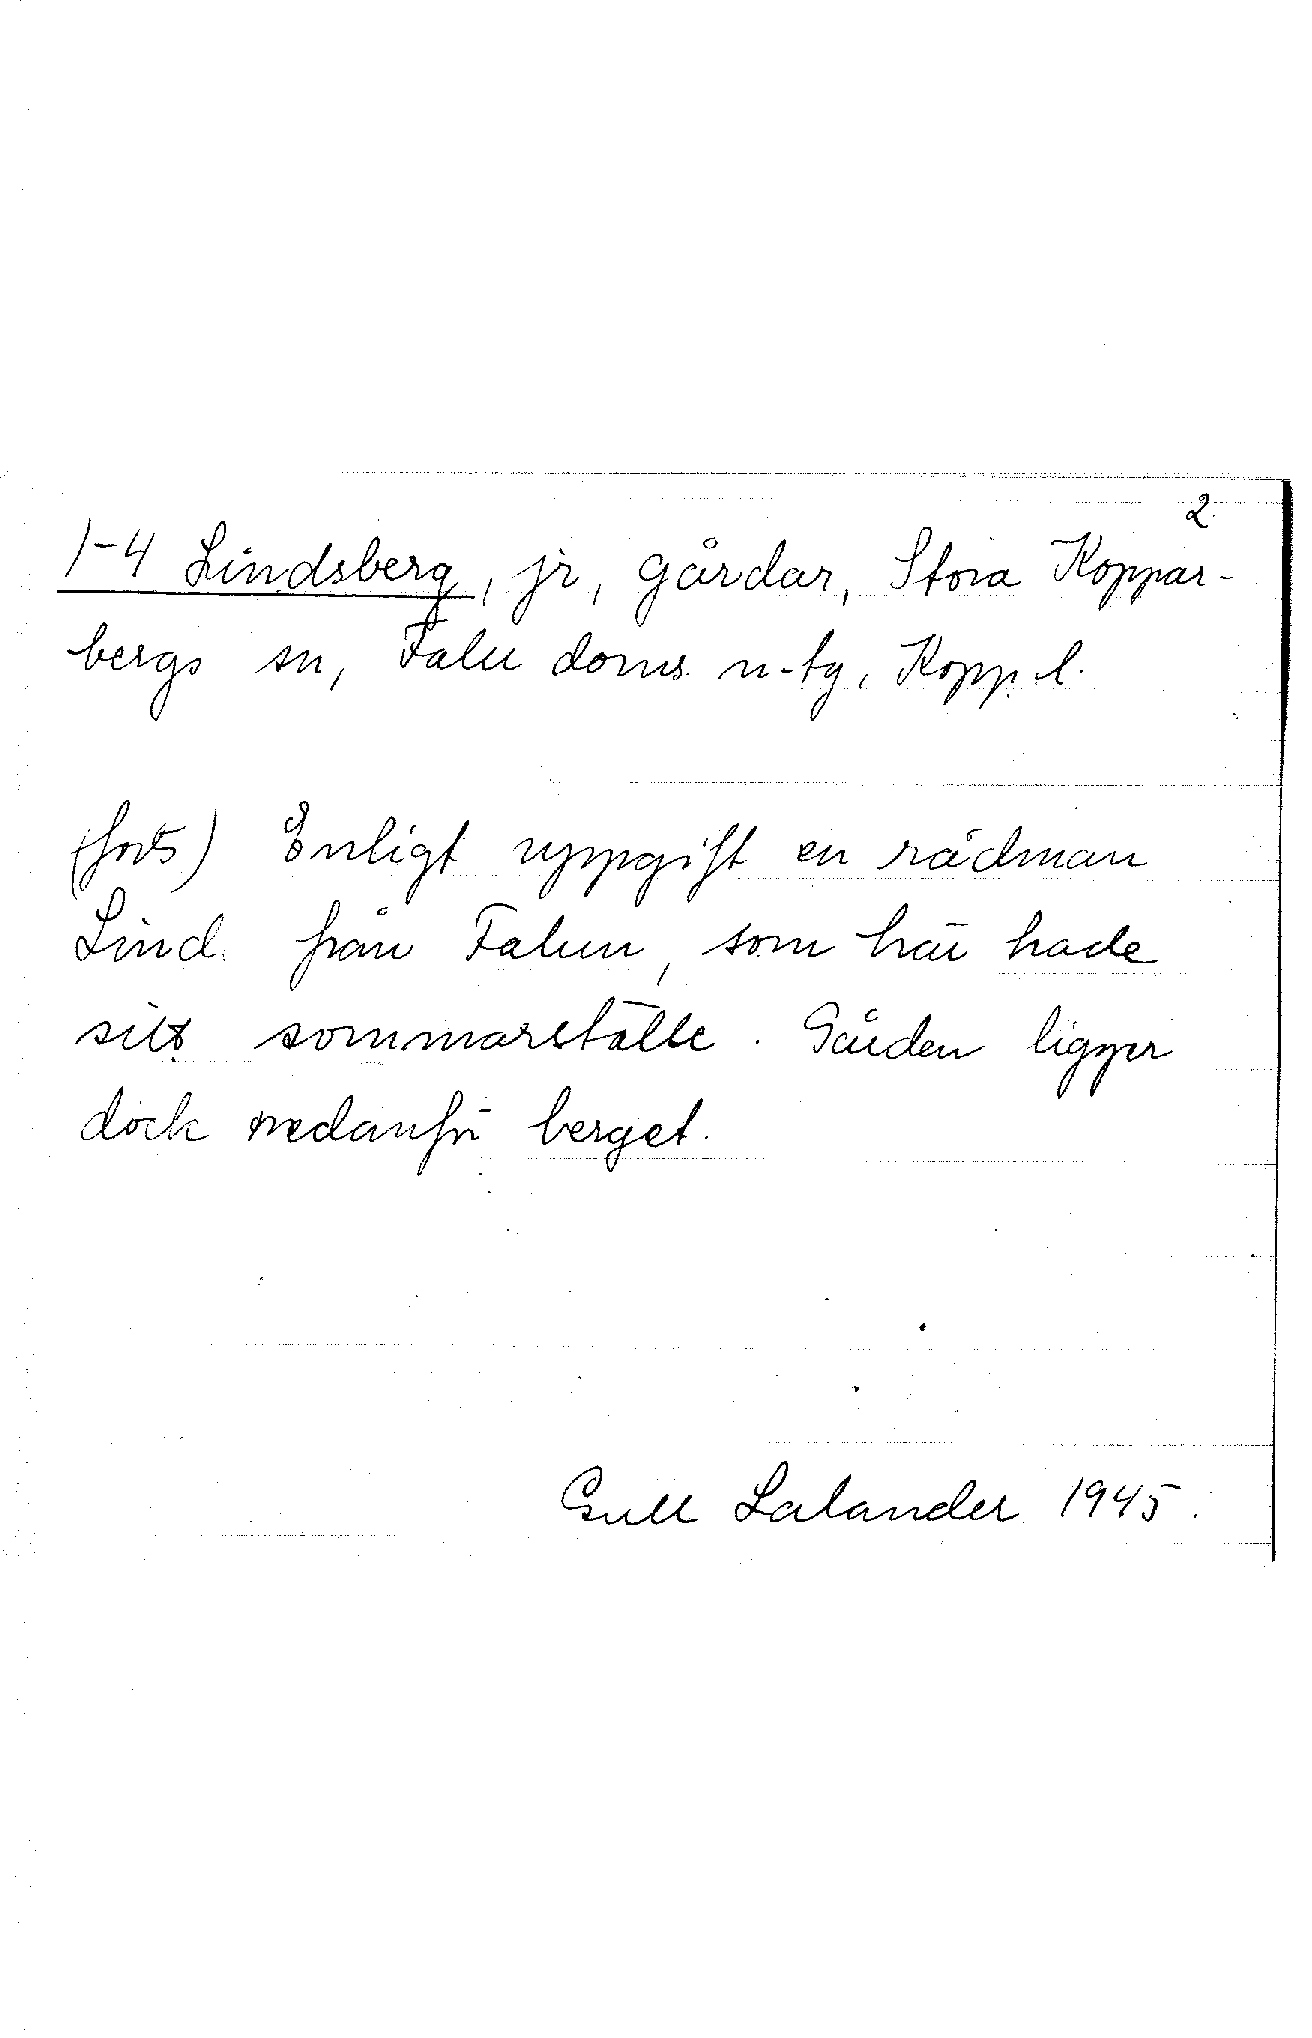 2.
1-4 Lindsberg, jr, gårdar, Stora Koppar-
bergs sn, Falu doms. n-tg, Kopp. l.
(forts) Enligt uppgift en rådman
Lind från Falun, som här hade
sitt sommarställe. Gården ligger
dock nedanför berget.
Gull Lalander 1945.